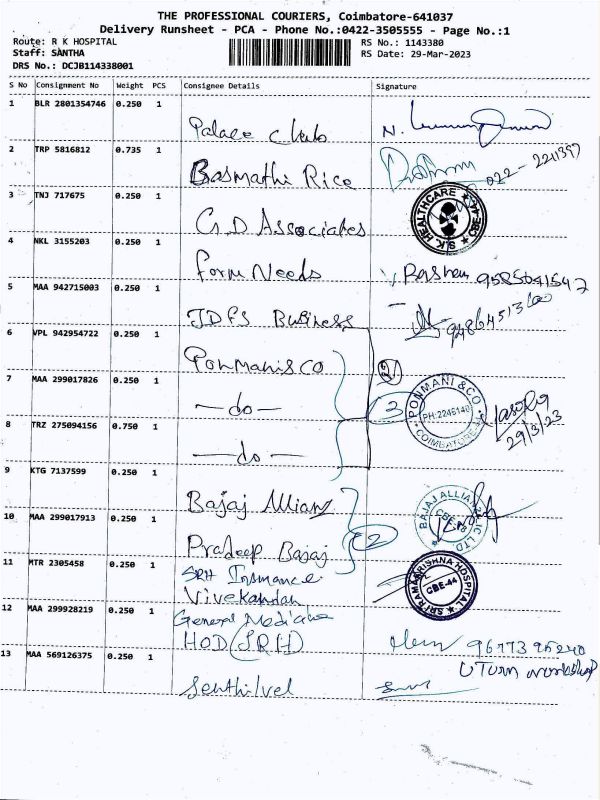 THE PROFESSIONAL COURIERS, Coimbatore-641037
Delivery Runsheet - PCA - Phone No.:0422-3505555 - Page No.:1
Route: R K HOSPITAL RS No.: 1143380
Staff: SANTHA RS Date: 29-Mar-2023
DRS No.: DCJB114338001
S No Consignment No Weight PCS Consignee Details Signature
1 BLR 2801354746 0.250 1
Palace Club N.
2 TRP 5816812 0.735 1
Basmathi Rice 022-2211397
3 TNJ 717675 0.250 1
G.D Associates S.K. HEALTHCARE
4 NKL 3155203 0.250 1
Form Needs 9585641547
5 MAA 942715003 0.250 1
JDFS Business
6 VPL 942954722 0.250 1
Ponmani&Co
7 MAA 299017826 0.250 1
—do— 3 PONMANI & CO. PH:2246140 COIMBATORE
29/3/23
8 TRZ 275094156 0.750 1
—do—
9 KTG 7137599 0.250 1
Bajaj Allianz BAJAJ ALLIANZ LIC LTD
10 MAA 299017913 0.250 1 2
Pradeep Bajaj
11 MTR 2305458 0.250 1
SRH Insurance SRI RAMAKRISHNA HOSPITAL CBE-44
Vivekandan
12 MAA 299928219 0.250 1
General Medicine
HOD (SRH)
13 MAA 569126375 0.250 1 UTurn workshop
Senthilvel